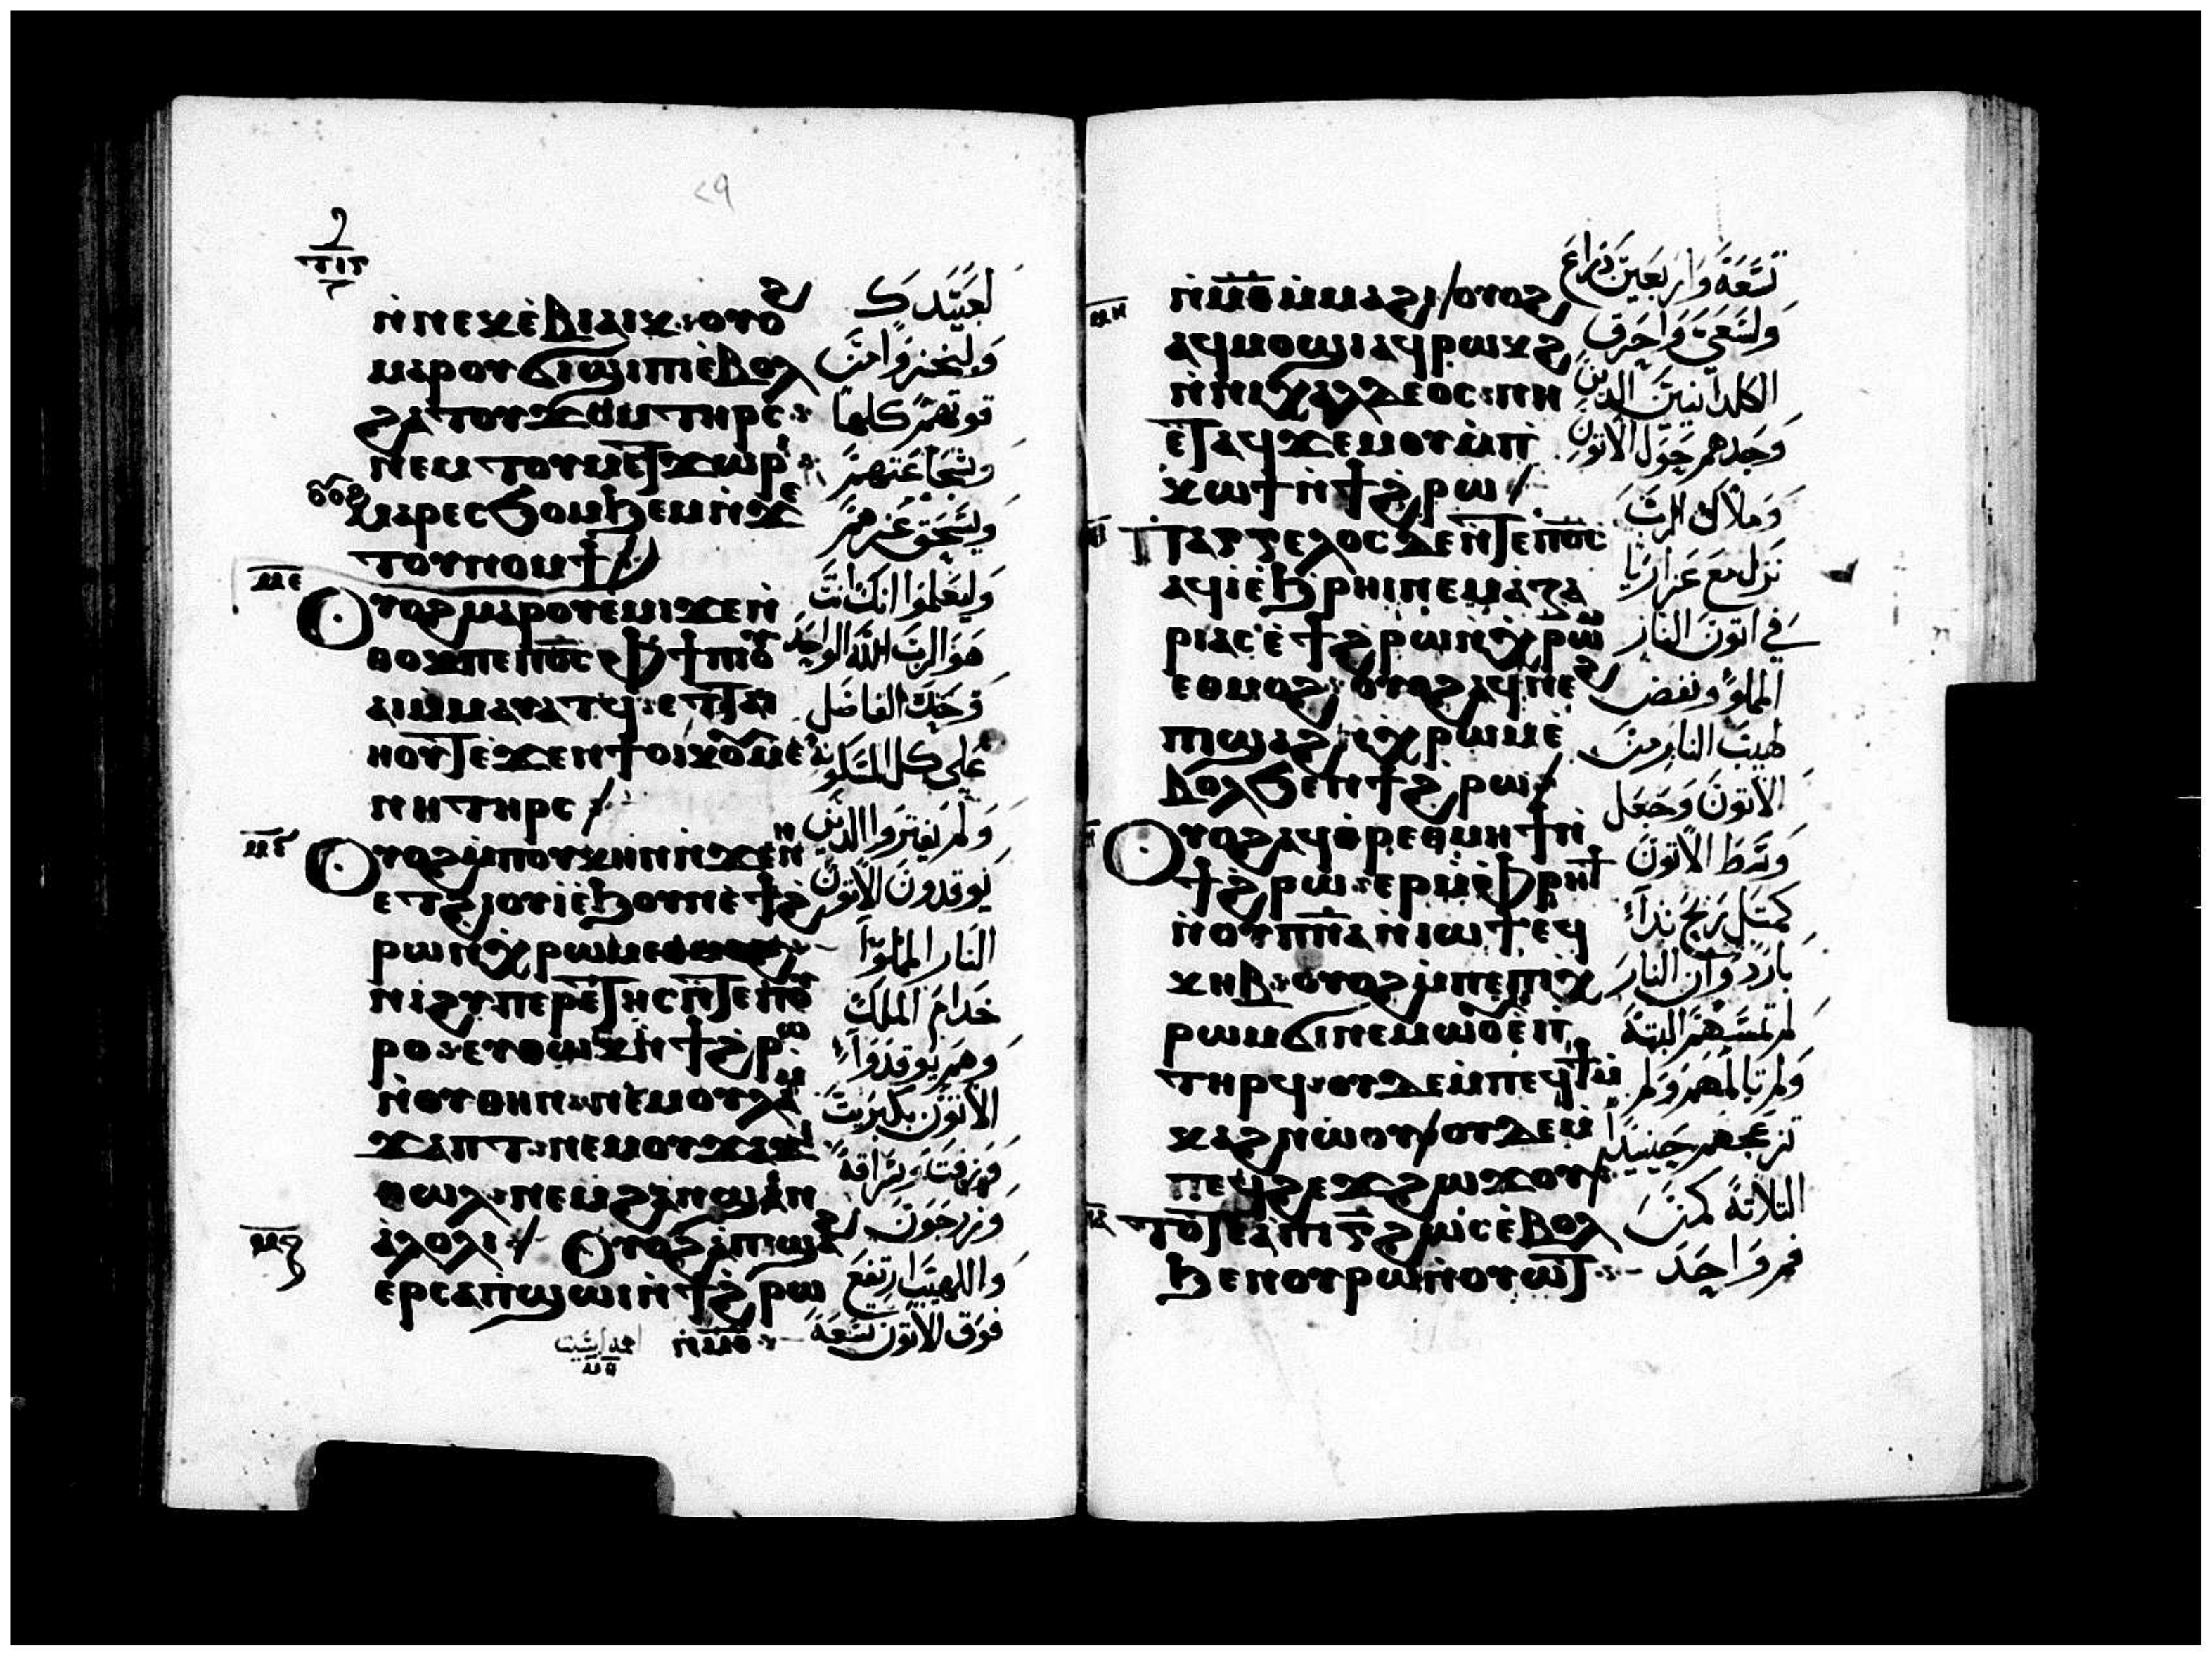 ⲛ̀ⲛⲉⲕⲉ̀ⲃⲓⲁⲓⲕ : ⲟⲩⲟϩ
ⲙⲁⲣⲟⲩϭⲓϣⲓⲡⲓ ⲉ̀ⲃⲟⲗ
ϩⲁ ⲧⲟⲩϫⲟⲙ ⲧⲏⲣⲥ :
ⲛⲉⲙ ⲧⲟⲩⲙⲉⲧϫⲱⲣⲓ :
ⲟⲩⲟϩ ⲙⲁⲣⲉⲥϧⲟⲙϧⲉⲙ ⲛ̀ϫⲉ
ⲧⲟⲩⲛⲟⲙϯ
ⲙⲉ
Ⲟⲩⲟϩ ⲙⲁⲣⲟⲩⲉ̀ⲙⲓ ϫⲉ ⲛ̀
ⲑⲟⲕ ⲡⲉ ⲡⲟ̅ⲥ̅ ⲫϯ ⲡⲓⲟⲩ
ⲁⲓ ⲙ̀ⲙⲁⲩⲁⲧϥ : ⲉⲧⲧⲁⲓ
ⲏⲟⲩⲧ ⲉ̀ϫⲉⲛ ϯⲟⲓⲕⲟⲩⲙⲉ
ⲛⲏ ⲧⲏⲣⲥ
ⲙⲋ
Ⲟⲩⲟϩ ⲙ̀ⲡⲟⲩⲭⲏⲛ ⲛ̀ϫⲉ ⲛⲏ
ⲉⲧϩⲓⲟⲩⲓ̀ ⲉ̀ϧⲟⲩⲛ ⲉ̀ϯϩ
ⲣⲱ ⲛ̀ⲭⲣⲱⲙ
ⲛⲓϩⲩⲡⲉⲣⲉⲧⲏⲥ ⲛ̀ⲧⲉ ⲡⲟⲩ
ⲣⲟ : ⲉⲩⲑⲱⲕ ⲛ̀ϯϩⲣⲱ
ⲛ̀ⲟⲩⲑⲏⲛ : ⲛⲉⲙ ⲟⲩⲗⲁⲙ
ϫⲁⲡⲧ : ⲛⲉⲙ ⲟⲩϫⲁϫⲓ
ⲑⲱⲗ : ⲛⲉⲙ ϩⲁⲛϣⲁⲛ
ⲁ̀ⲗⲟⲗⲓ : Ⲟⲩⲟϩ ⲁ̀ ⲡⲓϣⲁϩ
ⲙⲍ
ⲉⲣⲥⲁⲡ̀ϣⲱⲓ ⲛ̀ϯϩⲣⲱ
ⲛ̀ⲙ̅ⲑ̅ :
لعبيدك
وليخزوا من
قوتهم كلها
وشجاعتهم
ويسحق عزهم
وليعلموا انك انت
هو الرب الله الواحد
وحدك الفاضل
على كل المسكونة
ولم يفتروا الذين
يوقدون الاتون
النار المملوا
خدام الملك
وهم يوقدوا
الاتون بكبريت
وزفت ومشاقة
وزرجون
واللهيب ارتفع
فوق الاتون تسعة
ⲛ̀ⲙ̅ⲑ̅ ⲙ̀ⲙⲁϩⲓ ⲟⲩⲟϩ
ⲙⲏ
ⲁϥⲙⲟϣⲓ ⲁϥⲣⲱⲕϩ
ⲛ̀ⲛⲓⲭⲁⲗⲇⲉⲟⲥ : ⲛⲏ
ⲉ̀ⲧⲁϥϫⲉⲙⲟⲩ ⲙ̀ⲡ̀
ⲕⲱϯ ⲛ̀ϯϩⲣⲱ
ⲡⲓⲁⲅⲅⲉⲗⲟⲥ ⲇⲉ ⲛ̀ⲧⲉ ⲡⲟ̅ⲥ̅
ⲁϥⲓ̀ ⲉ̀ϧⲣⲏⲓ ⲛⲉⲙ ⲁ̀ⲍⲁ
ⲣⲓⲁⲥ ⲉ̀ϯϩⲣⲱ ⲛ̀ⲭⲣⲱⲙ
ⲉⲑⲙⲟϩ : ⲟⲩⲟϩ ⲁϥⲛⲉϩ
ⲡⲓϣⲁϩ ⲛ̀ⲭⲣⲱⲙ ⲉ̀
ⲃⲟⲗϧⲉⲛ ϯϩⲣⲱ
Ⲟⲩⲟϩ ⲁϥⲑⲣⲉ ⲑⲙⲏϯ ⲛ̀
ϯϩⲣⲱ : ⲉⲣ ⲙ̀ⲫⲣⲏϯ
ⲛ̀ⲟⲩⲡ̅ⲛ̅ⲁ̅ ⲛ̀ⲓⲱϯ ⲉϥ
ⲕⲏⲃ : ⲟⲩⲟϩ ⲙ̀ⲡⲉ ⲡⲓⲭ
ⲣⲱⲙ ϭⲓ ⲛⲉⲙⲱⲟⲩ ⲉ̀ⲡ
ⲧⲏⲣϥ : ⲟⲩⲇⲉ ⲙ̀ⲡⲉϥϯⲙ̀
ⲕⲁϩ ⲛⲱⲟⲩ ⲟⲩⲇⲉ ⲙ̀
ⲡⲉϥϩⲉϫϩⲱϫⲟⲩ
ⲛⲁ
ⲧⲟⲧⲉ ⲁ̀ ⲡⲓⲅ̅ ϩⲱⲥ ⲉ̀ⲃⲟⲗ
ϧⲉⲛ ⲟⲩⲣⲱ ⲛ̀ⲟⲩⲱⲧ :
تسعة واربعين ذراع
وسعى واحرق
الكلدانيين الذين
وجدهم حول الاتون
وملاك الرب
نزل مع عزاريا
في اتون النار
المملوا ونفض
لهيب النار من
الاتون وجعل
وسط الاتون
كمثل ريح ندا
بارد وان النار
لم تمسهم البتة
ولم تالمهم ولم
تزعجهم حينيذا
التلاتة كمن
فم واحد